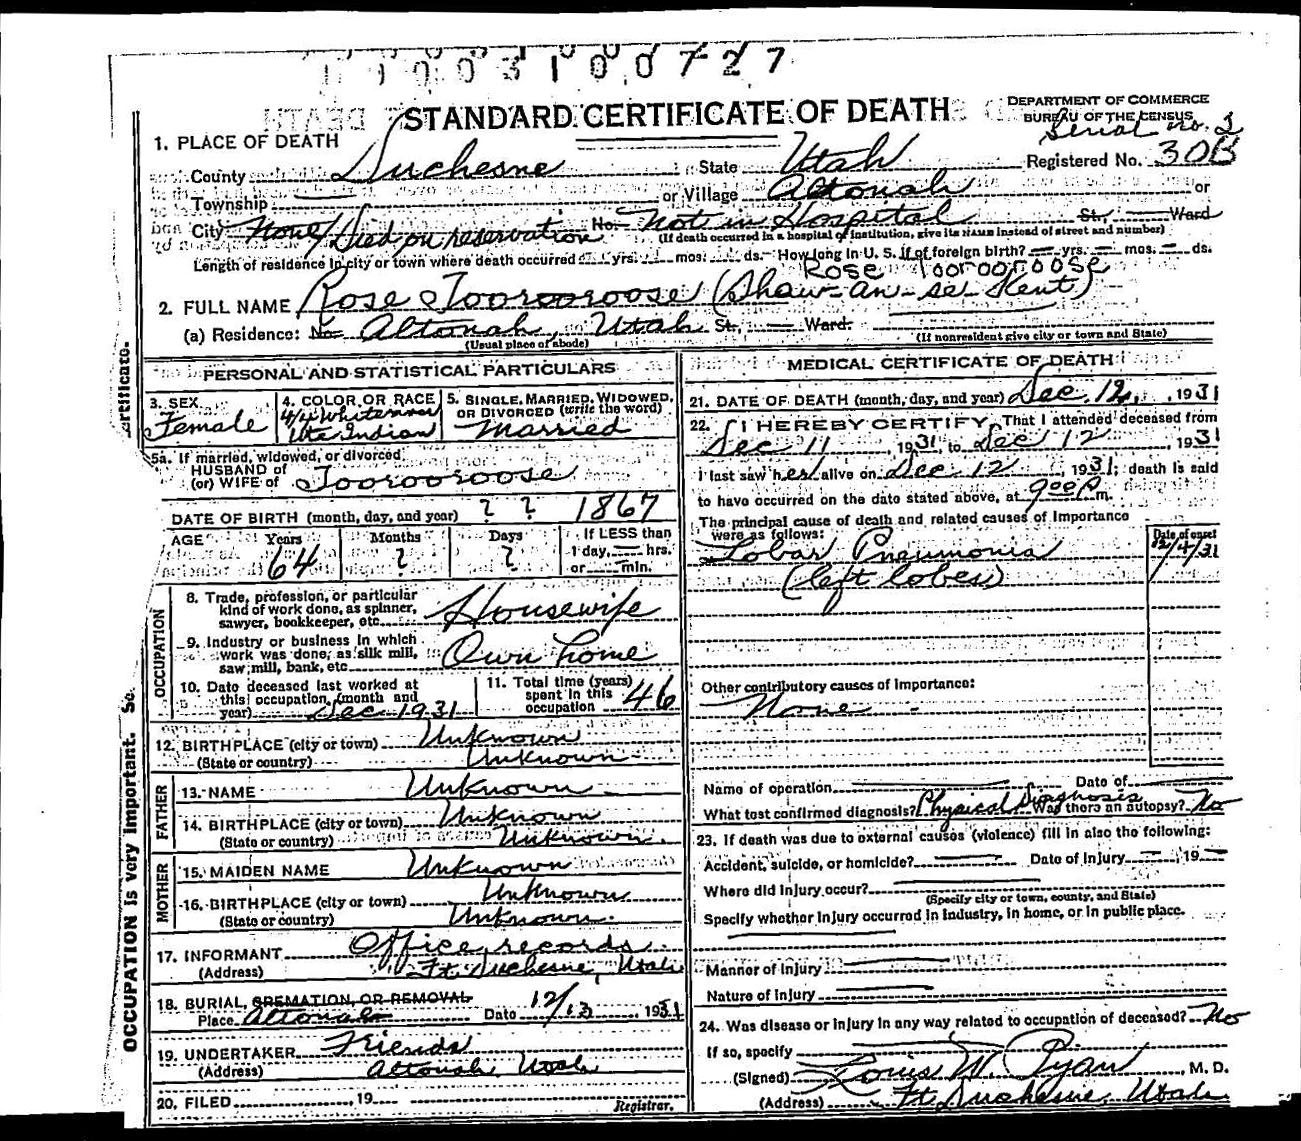 1 1 0 0 3 1 0 0 0 7 2 7
STANDARD CERTIFICATE OF DEATH
DEPARTMENT OF COMMERCE
BUREAU OF THE CENSUS
Serial no. 3
1. PLACE OF DEATH
County Duchesne State Utah Registered No. 30B
Township or Village Altonah or
City None/Died on reservation No. Not in Hospital St., Ward
(If death occurred in a hospital or institution, give its NAME instead of street and number)
Length of residence in city or town where death occurred yrs. mos. ds. How long in U. S. if of foreign birth? yrs. mos. ds.
Rose Toorooroose
2. FULL NAME Rose Toorooroose (Shaw-an-se Kent)
(a) Residence: No. Altonah, Utah St., Ward.
(Usual place of abode) (If nonresident give city or town and State)
PERSONAL AND STATISTICAL PARTICULARS
3. SEX Female
4. COLOR OR RACE 4/4 Ute Indian
5. SINGLE, MARRIED, WIDOWED, OR DIVORCED (write the word) Married
5a. If married, widowed, or divorced
HUSBAND of
(or) WIFE of Toorooroose
DATE OF BIRTH (month, day, and year) ? ? 1867
AGE Years Months Days If LESS than
64 ? ? 1 day, hrs.
or min.
OCCUPATION
8. Trade, profession, or particular
kind of work done, as spinner,
sawyer, bookkeeper, etc. Housewife
9. Industry or business in which
work was done, as silk mill,
saw mill, bank, etc. Own home
10. Date deceased last worked at
this occupation (month and
year) Dec 1931
11. Total time (years)
spent in this
occupation 46
12. BIRTHPLACE (city or town) Unknown
(State or country) Unknown
FATHER
13. NAME Unknown
14. BIRTHPLACE (city or town) Unknown
(State or country) Unknown.
MOTHER
15. MAIDEN NAME Unknown
16. BIRTHPLACE (city or town) Unknown
(State or country) Unknown.
17. INFORMANT Office records
(Address) Ft. Duchesne, Utah
18. BURIAL, CREMATION, OR REMOVAL
Place Altonah Date 12/13 1931
19. UNDERTAKER Friends
(Address) Altonah, Utah
20. FILED , 19
Registrar.
MEDICAL CERTIFICATE OF DEATH
21. DATE OF DEATH (month, day, and year) Dec. 12, , 1931
22. I HEREBY CERTIFY, That I attended deceased from
Dec 11 , 1931, to Dec 12 , 1931
I last saw her alive on Dec 12 , 1931; death is said
to have occurred on the date stated above, at 9:00 P m.
The principal cause of death and related causes of importance
were as follows:
Date of onset
Lobar Pneumonia 12/4/31
(left lobes)
Other contributory causes of importance:
None
Name of operation Date of
What test confirmed diagnosis? Physical Diagnosis Was there an autopsy? No
23. If death was due to external causes (violence) fill in also the following:
Accident, suicide, or homicide? Date of injury 19
Where did injury occur?
(Specify city or town, county, and State)
Specify whether injury occurred in industry, in home, or in public place.
Manner of injury
Nature of injury
24. Was disease or injury in any way related to occupation of deceased? No
If so, specify
(Signed) Louis W. Ryan , M. D.
(Address) Ft. Duchesne, Utah
OCCUPATION is very important. Se
ertificate.